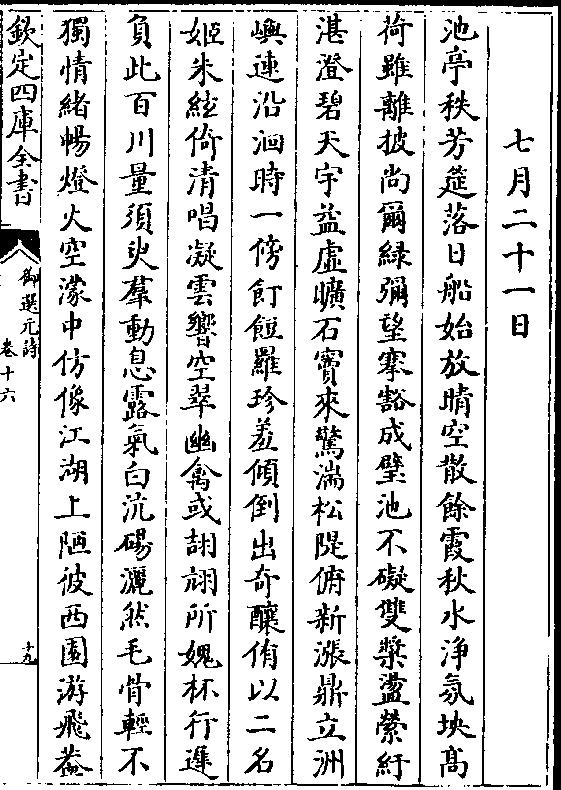 七月二十一日
池亭秩芳筵落日船始放晴空散餘霞秋水浄氛坱髙
荷雖離披尚爾緑彌望寒豁成壁池不礙雙槳盪縈紆
湛澄碧天宇益虚曠石竇來驚湍松隄俯新漲鼎立洲
嶼連沿洄時一傍飣餖羅珍羞傾倒出奇釀侑以二名
姬朱絃倚清唱凝雲響空翠幽禽或頡翃所媿杯行遲
負此百川量須臾羣動息露氣白沆碭灑然毛骨輕不
獨情緒暢燈火空濛中仿像江湖上陋彼西園游飛葢
欽定四庫全書
御選元詩
卷十六
十九